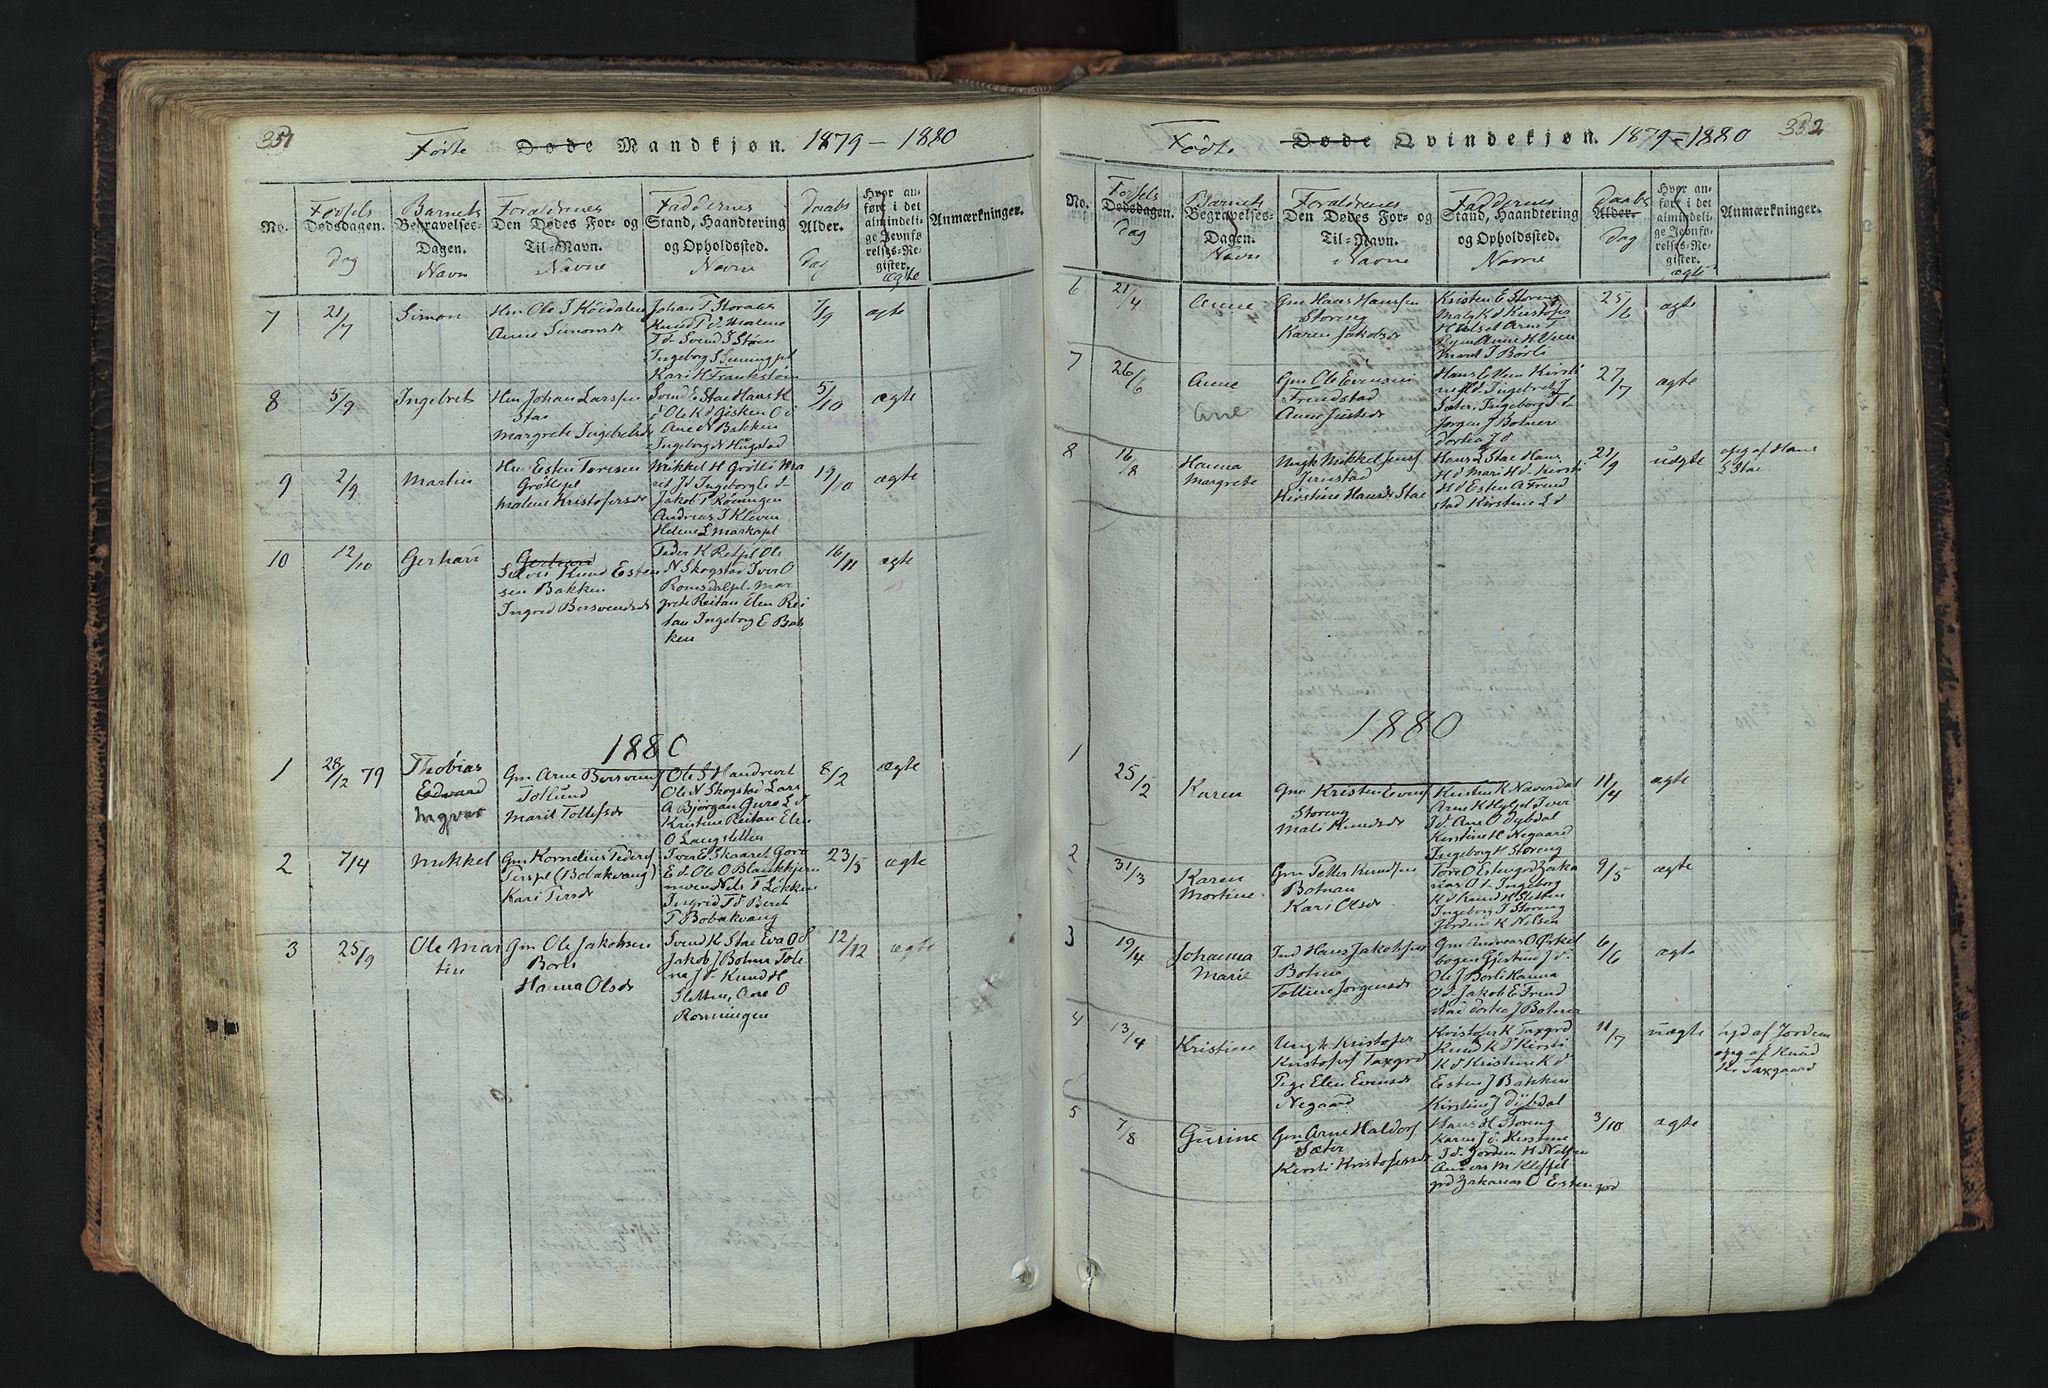 351
Fødte Døde Mandkjøn. 1879 – 1880
No.
Fødsels
Dødsdagen.
dag
Barnets
Begravelses-
Dagen.
Navn
Foraldrenes
Den Dødes For- og
Til-Navn.
Navne
Faddernes
Stand, Haandtering
og Opholdssted.
Navne
Daabs
Alder.
dag
Hvor an-
ført i det
almindeli-
ge Jevnfø-
relses-Re-
gister.
ægte
Anmærkninger.
7
21/7
Simon
Anne Simonsdr
Ingeborg S
7/9
ægte
8
5/9
Ingebret
Hm Johan Larssen
Stae
Margrete Ingebretsdr
Svend E Stae Hans K
Ane N Bakken
Ingeborg N Hugstad
5/10
ægte
9
2/9
Martin
Hm Esten Toresen
Grøtlipl
Malene Kristofersdr
Mikkel H Grøtli Ma
Jakob T Röningen
Andreas J Kleven
Helene L Markapl
19/10
ægte
10
12/10
Gerhard
Gerhard
Selvei Knud Esten
sen Bakken
Ingrid Bersvendsdr
Peder K Retpl Ole
N Skogstad Iver O
Romsdalpl Mar
grete Reitan Elen Rei
tan Ingeborg E Bak
ken
16/11
ægte
1880
1
28/12 79
Thobias
Edvard
Ingvar
Gm Arne Bersvends
Tollund
Marit Tollefsdr
Ole N Skogstad Lars
A Bjørgan Guro L d
Kristine Reitan Elen
O Langsletten
8/2
ægte
2
7/4
Mikkel
Gm Kornelius Peders
Terspl (Bobakvang)
Kari Persdr
Iver E Skaaret Goro
E d Ole O Blankkjern
moen Nels T Løkken
Ingrid T d Beret
T Bobakvang
23/5
ægte
3
25/9
Ole Mar
tin
Gm Ole Jakobsen
Borli
Hanna Olsdr
Svend K Stae Eva O d
Jakob J Botnan Tole
na J d. Knud H
Sletten, Ane O
Ronningen
12/12
ægte
352
Fødte Døde Qvindekjøn. 1879 – 1880
No.
Fødsels
Dødsdagen.
dag
Barnets
Begravelses-
Dagen.
Navn
Foraldrenes
Den Dødes For- og
Til-Navn.
Navne
Faddernes
Stand, Haandtering
og Opholdssted.
Navne
Daabs
Alder.
dag
Hvor an-
ført i det
almindeli-
ge Jevnfø-
relses-Re-
gister.
ægte
Anmærkninger.
6
21/4
Anne
Gm Hans Hanssen
Storeng
Karen Jakobsdr
Kristen E Storeng
Mali K d Kristofer
Marit J Börli
25/6
ægte
7
26/6
Anne
Ane
Gm Ole Evensen
Frendstad
Anne Jensdr
Sæter. Ingeborg I d
Jørgen J Botnen
Dortea J d
27/7
ægte
8
16/8
Hanna
Margrete
Ungk Mikkel Jens
Jenstad
Kirstine Hansdr Stae
Hans L Stae Hans
H d Mari H d. Kirsti
H d Esten A Frend
stad Kirstine L d
21/9
uægte
opg af Hans
L Stae
1880
1
25/2
Karen
Gm Kristen Evens
Storeng
Mali Knudsdr
Kristen K Naverdal
I d. Ane O Dybdal
Kirstine H Negaard
Ingeborg H Storeng
11/4
ægte
2
31/3
Karen
Martine
Gm Petter Knudsen
Botnan
Kari Olsdr
Tore O Estengrd Zaka
rias O d. Ingeborg
K d Knud H Sletten
Ingeborg J Storeng
9/5
ægte
3
19/4
Johanna
Marie
Ind Hans Jakobsen
Botnan
Tolline Jørgensdr
Gm Andreas O Ørkel
bogen Gjertrud J d.
Ole J Borli Hanna
O d. Jakob E Frend
stad Dortea J Botnan
6/6
ægte
4
13/4
Kristian
Ungk Kristofer
Kristofers Taxgrd
Pige Elen Evensdr
Negaard
Kristofer K Taxgrd
Knud K d Kirsti
K d Kristine K d
Esten J Bakken
Kirstine J Dybdal
11/7
uægte
opd af Jorden
opg af Knud
Kr Taxgaard
5
7/8
Gurine
Gm Arne Haldors
Sæter
Kirsti Kristofersdr
Hans H Storeng
Karen J d. Kirstine
I d. Jorden H Nelsen
Anders M Kleffel
grd Zakarias O Estengrd
3/10
ægte